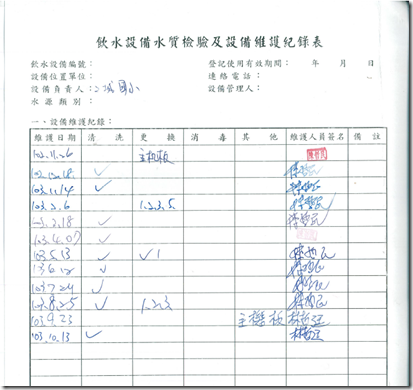 飲水設備水質檢驗及設備維護紀錄表
飲水設備編號： 登記使用有效期間： 年 月 日
設備位置單位： 連絡電話：
設備負責人： 國小 設備管理人：
水源類別：
一、設備維護紀錄：
維護日期 清洗 更換 消毒 其他 維護人員簽名 備註
102.11.26 主機板
102.12.18 ✓
103.1.14 ✓
103.2.6 1.2.3.5
103.2.18 ✓
103.4.07 ✓
103.5.13 ✓ ✓1
✓
103.7.24 ✓
103.8.25 ✓ 1.2.3
103.9.23 主機板
103.10.13 ✓